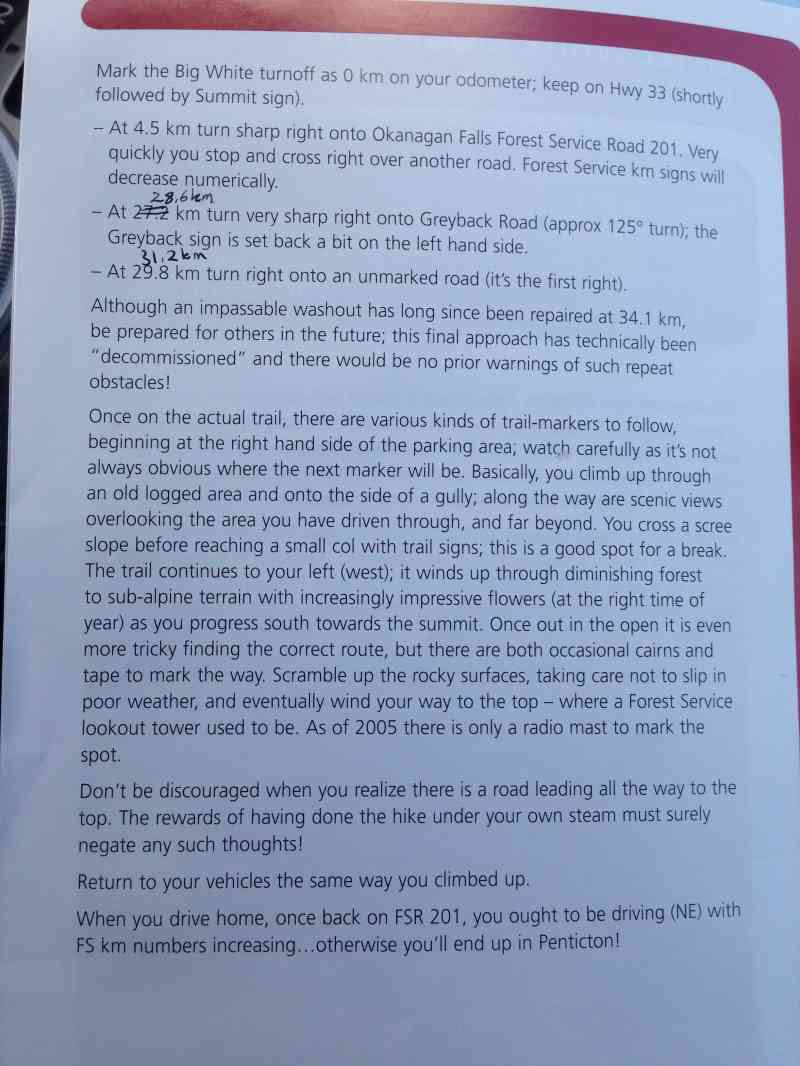 Mark the Big White turnoff as 0 km on your odometer; keep on Hwy 33 (shortly
followed by Summit sign).
– At 4.5 km turn sharp right onto Okanagan Falls Forest Service Road 201. Very
quickly you stop and cross right over another road. Forest Service km signs will
decrease numerically.
28.6km
– At 27.2 km turn very sharp right onto Greyback Road (approx 125° turn); the
Greyback sign is set back a bit on the left hand side.
31.2km
– At 29.8 km turn right onto an unmarked road (it's the first right).
Although an impassable washout has long since been repaired at 34.1 km,
be prepared for others in the future; this final approach has technically been
"decommissioned" and there would be no prior warnings of such repeat
obstacles!
Once on the actual trail, there are various kinds of trail-markers to follow,
beginning at the right hand side of the parking area; watch carefully as it's not
always obvious where the next marker will be. Basically, you climb up through
an old logged area and onto the side of a gully; along the way are scenic views
overlooking the area you have driven through, and far beyond. You cross a scree
slope before reaching a small col with trail signs; this is a good spot for a break.
The trail continues to your left (west); it winds up through diminishing forest
to sub-alpine terrain with increasingly impressive flowers (at the right time of
year) as you progress south towards the summit. Once out in the open it is even
more tricky finding the correct route, but there are both occasional cairns and
tape to mark the way. Scramble up the rocky surfaces, taking care not to slip in
poor weather, and eventually wind your way to the top – where a Forest Service
lookout tower used to be. As of 2005 there is only a radio mast to mark the
spot.
Don't be discouraged when you realize there is a road leading all the way to the
top. The rewards of having done the hike under your own steam must surely
negate any such thoughts!
Return to your vehicles the same way you climbed up.
When you drive home, once back on FSR 201, you ought to be driving (NE) with
FS km numbers increasing...otherwise you'll end up in Penticton!